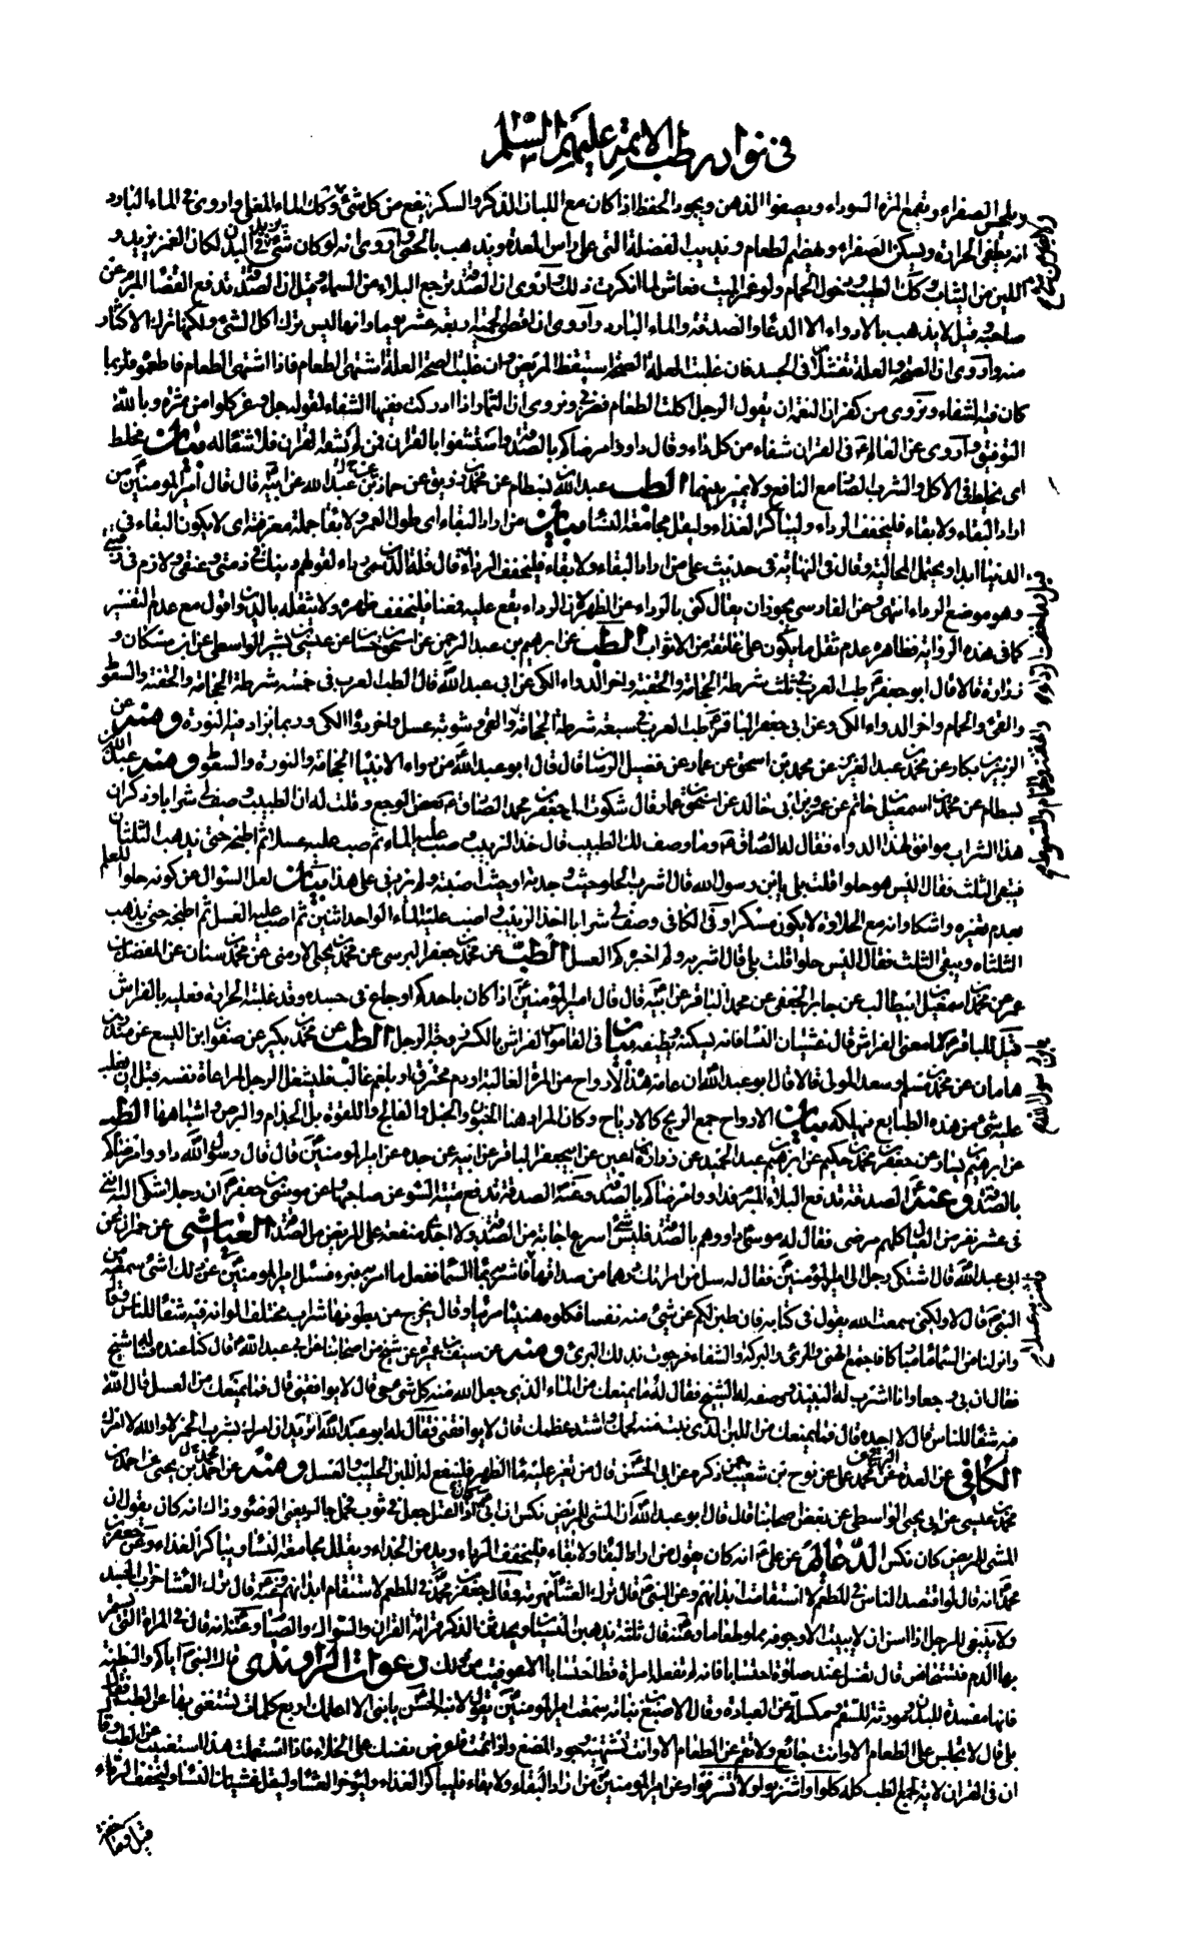 في نوادر طب الائمة عليهم السلام
الصفراء ويقمع المرة السوداء ويصفوا الذهن ويجود الحفظ اذا كان مع اللبان الذكر والسكر ينفع من كل شئ وكك الماء المغلي واروى في الماء البارد
انه يطفى الحرارة ويسكن الصفراء ويهضم الطعام ويذيب الفضلة التى على راس المعدة ويذهب بالحمى واروى انه لو كان شئ يزيد في البدن لكان الغمز يزيد و
اللين من الثياب وكك الطيب ودخول الحمام ولو غمز الميت فعاش لما انكرت ذلك واروى ان الصدقة ترجع البلاء من السماء وقيل ان الصدقة تدفع القضاء المبرم عن
صاحبه قيل لا يذهب بالادواء الا الدعاء والصدقة والماء البارد واروى ان اقصى الحمية اربعة عشر يوما وانها ليس ترك اكل الشئ ولكنها ترك الاكثار
منه واروى ان الصحة والعلة تقتتلان في الجسد فان غلبت العلة الصحة استيقظ المريض وان غلبت الصحة العلة اشتهى الطعام فاذا اشتهى الطعام فاطعموه فلربما
كان فيه الشفاء ونروى من كفران النعم ان يقول الرجل اكلت الطعام فضرني ونروى ان الثمار اذا ادركت ففيها الشفاء لقوله جل وعز كلوا من ثمره وبالله
التوفيق واروى عن العالم ع في القران شفاء من كل داء وقال داووا مرضاكم بالصدقة واستشفوا بالقران فمن لم يشفه القران فلا شفاء له بيان تخلط
اى يخلط في الاكل والشرب الضار مع النافع ولا يميز بينهما الطب عبدالله بن بسطام عن محمد بن رزيق عن حماد بن عيسى عن ابى عبد الله عن ابيه قال قال امير المؤمنين من
اراد البقاء ولا بقاء فليخفف الرداء وليباكر الغذاء وليقل مجامعة النساء بيان من اراد البقاء اى طول العمر ولا بقاء جملة معترضة اى لا يكون البقاء في
الدنيا ابدا ويحتمل الحالية وقال في النهاية في حديث على من اراد البقاء ولا بقاء فليخفف الرداء قال قلة الدين سمى رداء لقولهم دينك في ذمتى وعنقى ولازم في رقبتى
وهو موضع الرداء انتهى وعن الفارسى يجوز ان يقال كنى بالرداء عن الظهر لان الرداء يقع عليه فمعناه فليخفف ظهره ولا يثقله بالدين واقول مع عدم التفسير
كما في هذه الرواية فظاهره عدم ثقل ما يكون على عاتقه من الاثواب الطب عن ابرهيم بن عبد الرحمن عن اسحق بن حسان عن عيسى بن بشير الواسطى عن ابن مسكان و
زرارة قالا قال ابو جعفر طب العرب في ثلث شرطة الحجامة والحقنة واخر الدواء الكى عن ابى عبد الله قال الطب العرب في خمسة شرطة الحجامة والحقنة والسعوط
والقئ والحمام واخر الدواء الكى وعن ابى جعفر الباقر ع طب العرب في سبعة شرطة الحجامة والقئ وشربة عسل واخر دواء الكى وربما يزاد فيه النورة ومنه عن
الزبير بن بكار عن محمد بن عبد العزيز عن محمد بن اسحق عن عمار عن فضيل الرسان قال قال ابو عبد الله من دواء الانبياء الحجامة والنورة والسعوط ومنه عن عبد الله بن
بسطام عن محمد بن اسمعيل بن حاتم عن عمرو بن ابى خالد عن اسحق بن عمار قال شكوت الى جعفر بن محمد الصادق ع بعض الوجع وقلت له ان الطبيب وصف لى شرابا وذكر ان
هذا الشراب موافق لهذا الداء فقال له الصادق ع وما وصف لك الطبيب قال خذ الزبيب وصب عليه الماء ثم صب عليه عسلا ثم اطبخه حتى يذهب الثلثان
فيبقى الثلث فقال اليس هو حلوا قلت بلى يابن رسول الله قال اشرب الحلو حيث وجدته او حيث اصبته ولم يزدنى على هذا بيان لعل السؤال عن كونه حلوا للعلم
بعدم تغيره واسكاره وانه مع الحلاوة لا يكون مسكرا وفى الكافى وصف لى شرابا اخذ الزبيب و اصب عليه الماء الواحد اثنين ثم اصب عليه العسل ثم اطبخه حتى يذهب
الثلثاه ويبقى الثلث فقال اليس حلوا قلت بلى قال اشربه ولم اخبره كم العسل الطب عن محمد بن جعفر البرسى عن محمد بن يحيى الارمنى عن محمد بن سنان عن المفضل بن
عمر عن محمد بن اسمعيل بن ابيطالب عن جابر الجعفى عن محمد الباقر عن ابيه قال قال امير المؤمنين اذا كان باحدكم اوجاع في جسده وقد غلبته الحرارة فعليه بالفراش
قيل للباقر ع ما معنى الفراش قال غشيان النساء فانه يسكنه ويطفيه بيان في القاموس الفراش بالكسر زوجة الرجل الطب عن محمد بن بكير عن صفوان بن اليسع عن منذر بن
هامان عن محمد بن مسلم وسعد المولى قالا قال ابو عبد الله ان عامة هذه الارواح من المرة الغالبة او دم محترق او بلغم غالب فليشتغل الرجل بمراعاة نفسه قبل ان يغلب
عليه شئ من هذه الطبايع فيهلكه بيان الارواح جمع الريح كالارياح وكان المراد هنا الجنون والخبل والفالج واللقوة بل الجذام والبرص واشباهها الطب
عن ابرهيم بن يسار عن جعفر بن محمد بن حكيم عن ابرهيم بن عبد الحميد عن زرارة بن اعين عن ابى جعفر الباقر عن ابيه عن جده عن امير المؤمنين قال قال رسول الله داووا مرضاكم
بالصدقة وعنه الصدقة تدفع البلاء المبرم فداووا مرضاكم بالصدقة وعنه الصدقة تدفع ميتة السوء عن صاحبها وعن موسى بن جعفر ان رجلا شكى اليه انني
في عشر نفر من العيال كلهم مرضى فقال له موسى داووهم بالصدقة فليس شئ اسرع اجابة من الصدقة ولا اجدى منفعة على المريض من الصدقة العياشى عن حمران عن
ابى عبد الله قال اشتكى رجل الى امير المؤمنين فقال له سل من امراتك درهما من صداقها فاشتر به عسلا فاشربه بماء السماء ففعل ما امر به فبرء فسئل امير المؤمنين عن ذلك اشئ سمعته من
النبى ص قال لا ولكنى سمعت الله يقول في كتابه فان طبن لكم عن شئ منه نفسا فكلوه هنيئا مريئا وقال يخرج من بطونها شراب مختلف الوانه فيه شفاء للناس وقال
وانزلنا من السماء ماء مباركا فاجتمع الهنئ والمرئ والبركة والشفاء فرجوت بذلك البرء ومنه عن سيف بن عميرة عن شيخ من اصحابنا عن ابى عبد الله قال كنا عنده فساله شيخ
فقال ان بى وجعا وانا اشرب له النبيذ ووصفه له الشيخ فقال له ما يمنعك من الماء الذى جعل الله منه كل شئ حى قال لا يوافقنى قال فما يمنعك من العسل قال الله
فيه شفاء للناس قال لا اجده قال فما يمنعك من اللبن الذى نبت منه لحمك واشتد عظمك قال لا يوافقنى فقال له ابو عبد الله اتريد ان امرك بشرب الخمر لا والله لا امرك
الكافى عن العدة عن البرقى عن محمد بن على عن نوح بن شعيب عمن ذكره عن ابى الحسن قال من تغير عليه ماء الظهر فلينفع له اللبن الحليب والعسل ومنه عن محمد بن يحيى عن احمد بن
محمد بن عيسى عن ابى يحيى الواسطى عن بعض اصحابنا قال قال ابو عبد الله ان المشى للمريض نكس ان ابى كان اذا اعتل جعل في ثوب فحمل لحاجته يعنى الوضوء وذاك انه كان يقول ان
المشى للمريض نكس الدعائم عن على انه كان يقول من اراد البقاء ولا بقاء فليخفف الرداء ويدمن الحذاء ويقلل مجامعة النساء ويباكر الغداء وعن جعفر بن
محمد انه قال لو اقتصد الناس في المطعم لاستقامت ابدانهم وعن النبى ص قال ترك العشاء مهرمة وقال جعفر بن محمد قال ترك العشاء خراب الجسد
ولا ينبغى للرجل اذا اسن ان لا يبيت الا وجوفه مملو طعاما وعنه قال ثلثة يذهبن النسيان ويحدثن الذكر قرائة القران والسواك والصيام وعنه انه قال في المراة التى يستمر
بها الدم فتستحاض قال تغتسل عند كل صلوة احتسابا فانه لم تفعله امراة قط احتسابا الا عوفيت من ذلك دعوات الراوندى قال النبى ص اياكم والبطنة
فانها مفسدة للبدن ومورثة للسقم ومكسلة عن العبادة وقال الاصبغ بن نباتة سمعت امير المؤمنين يقول لابنه الحسن يا بنى الا اعلمك اربع كلمات تستغنى بها عن الطب فقال
بلى قال لا تجلس على الطعام الا وانت جائع ولا تقم عن الطعام الا وانت تشتهيه وجود المضغ واذا نمت فاعرض نفسك على الخلاء فاذا استعملت هذا استغنيت عن الطب وقال
ان في القران لاية تجمع الطب كله كلوا واشربوا ولا تسرفوا وعن امير المؤمنين من اراد البقاء ولا بقاء فليباكر الغذاء وليؤخر العشاء وليقل غشيان النساء وليخفف الرداء
قيل وما خفة